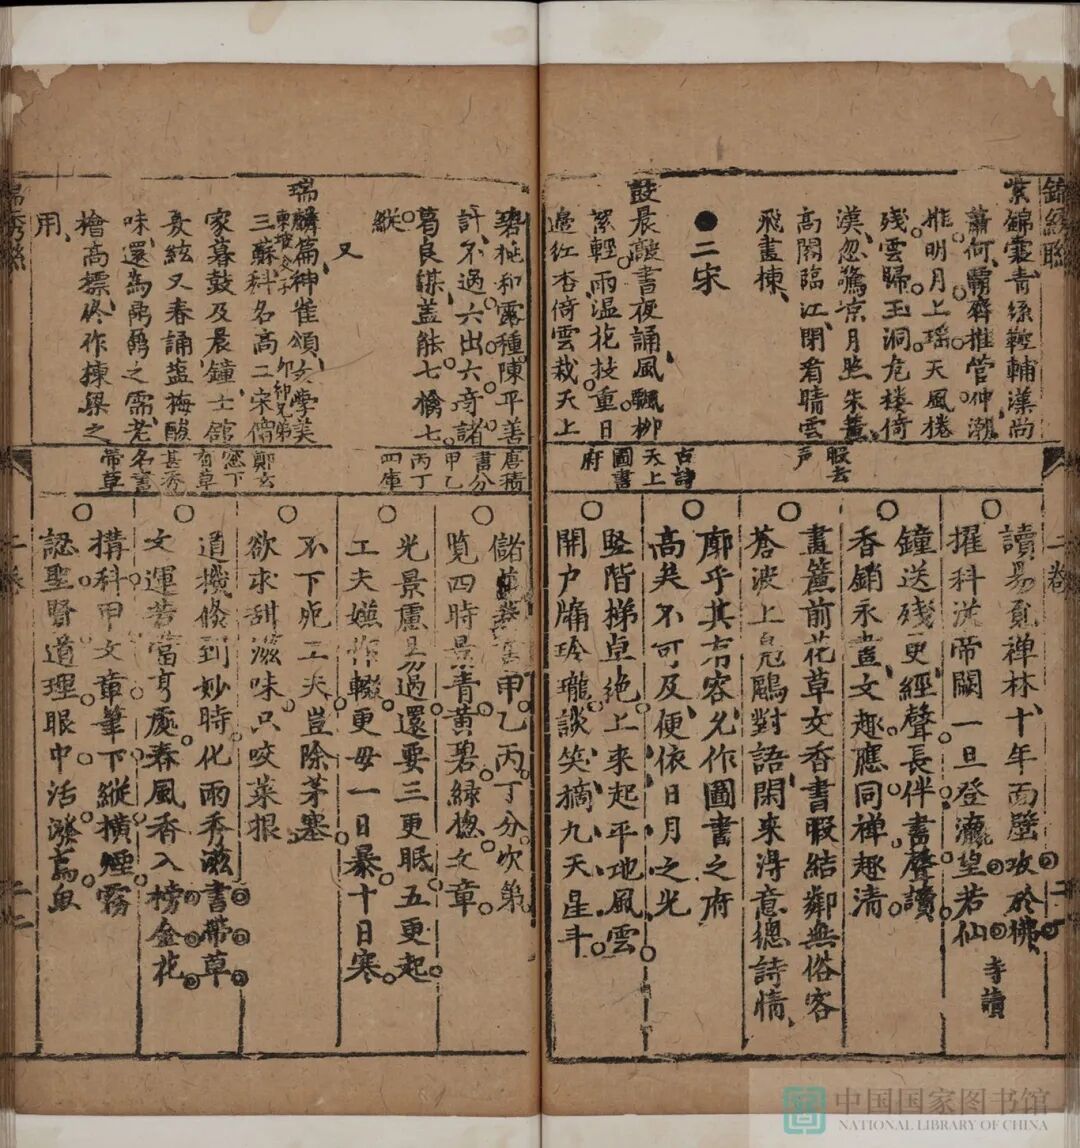 錦綉聯
紫錦囊青絲鞚輔漢尚
蕭何霸齊推管仲潮
推明月上瑤天風捲
殘雲歸玉洞危楼倚
漢忽驚凉月照朱簾
高閣臨江閉看晴雲
飛畫棟
●二宋
鼓晨敲書夜誦風飄柳
絮輕雨温花技重日
邉紅杏倚雲栽天上
碧桃和露種陳平善
計不過六出六奇諸
葛良謀盖能七擒七
縱
又
瑞麟篇神雀頌文學美
東坡父子
三蘇科名高二宋僧
郊祁兄弟
家暮鼓及晨鐘士館
夏絃又春誦盐梅醎
味還為鼎鼐之需老
檜高標佟作棟梁之
用
暇去
声
古詩
天上
圖書
府
唐積
書分
甲乙
丙丁
四庫
鄭玄
窓下
有草
甚秀
名書
帶草
二卷
讀易寛禅林十年面壁攻於佛
寺讀
擢科洪帝闕一旦登瀛望若仙
鐘送残更經聲長伴書聲讀
香銷永晝文趣應同禅趣清
畫簷前花草文香書暇結鄰無俗客
蒼波上鳬鷗對語閑来淂意總詩情
廓乎其有容允作圖書之府
高矣不可及便依日月之光
竪階梯卓絶上来起平地風雲
開户牖玲瓏談笑摘九天星斗
甲乙丙丁分次第
覧四時景青黄碧緑揔文章
光景慮易過還要三更眠五更起
工夫嫵作輟更毋一日暴十日寒
不下死工夫豈除茅塞
欲求甜滋味只咬菜根
道機條到妙時化雨秀滋書帶草
文運若當亨處春風香入榜金花
搆科甲文章筆下縱横煙霧
認聖賢道理眼中活潑鳶魚
二卷